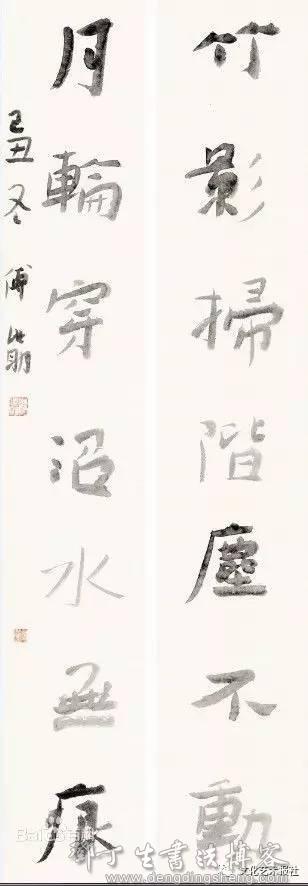 竹影掃階塵不動
月輪穿沼水無痕
己丑冬 傅
Baidu百科
邓丁生書法博客
www.dengdingsheng.com
文化艺术报社